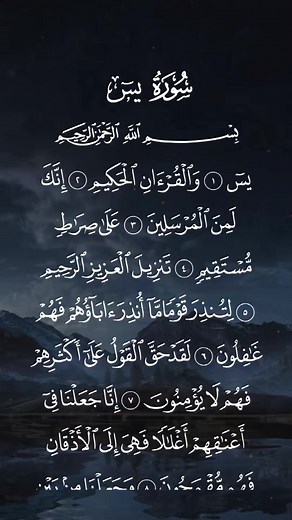 سُورَةُ يسٓ
بِسْمِ ٱللَّهِ ٱلرَّحْمَٰنِ ٱلرَّحِيمِ
يسٓ ١ وَٱلْقُرْءَانِ ٱلْحَكِيمِ ٢ إِنَّكَ
لَمِنَ ٱلْمُرْسَلِينَ ٣ عَلَىٰ صِرَٰطٍ
مُّسْتَقِيمٍ ٤ تَنزِيلَ ٱلْعَزِيزِ ٱلرَّحِيمِ
٥ لِتُنذِرَ قَوْمًا مَّآ أُنذِرَ ءَابَآؤُهُمْ فَهُمْ
غَٰفِلُونَ ٦ لَقَدْ حَقَّ ٱلْقَوْلُ عَلَىٰٓ أَكْثَرِهِمْ
فَهُمْ لَا يُؤْمِنُونَ ٧ إِنَّا جَعَلْنَا فِىٓ
أَعْنَٰقِهِمْ أَغْلَٰلًا فَهِىَ إِلَى ٱلْأَذْقَانِ
فَهُم مُّقْمَحُونَ ٨ وَجَعَلْنَا مِنۢ بَيْنِ